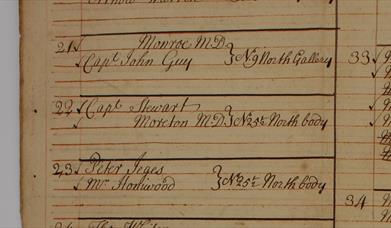 21 Monroe M.D.
Capt John Guy } No 9 North Gallery
33
22 Capt Stewart
Moreton M.D. } No 25 North body
23 Peter Jeges
Mr Honiwood } No 25 North body
34